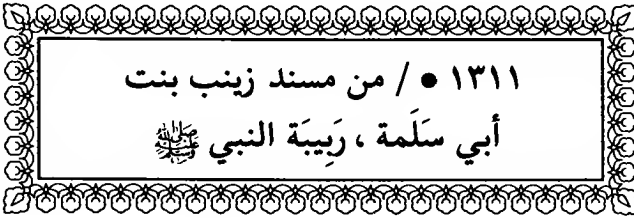 ١٣١١ • / من مسند زينب بنت
أبي سَلَمة ، رَبِيبَة النبي ﷺ